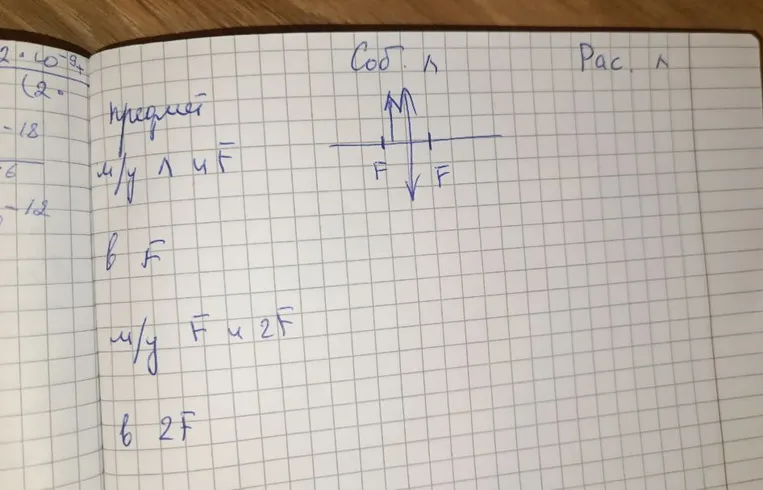 2 · 10⁻⁹
(2 ·
-18
6
-12
Соб. л Рас. л
предмет
м/у л и F
F F
в F
м/у F и 2F
в 2F